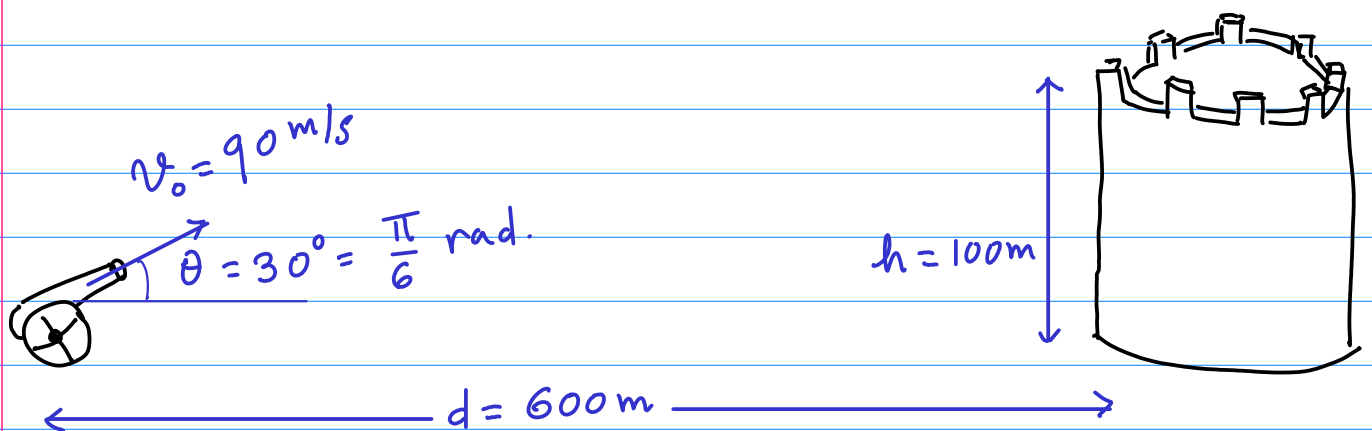 v₀ = 90 m/s
θ = 30° = π/6 rad.
h = 100m
d = 600 m